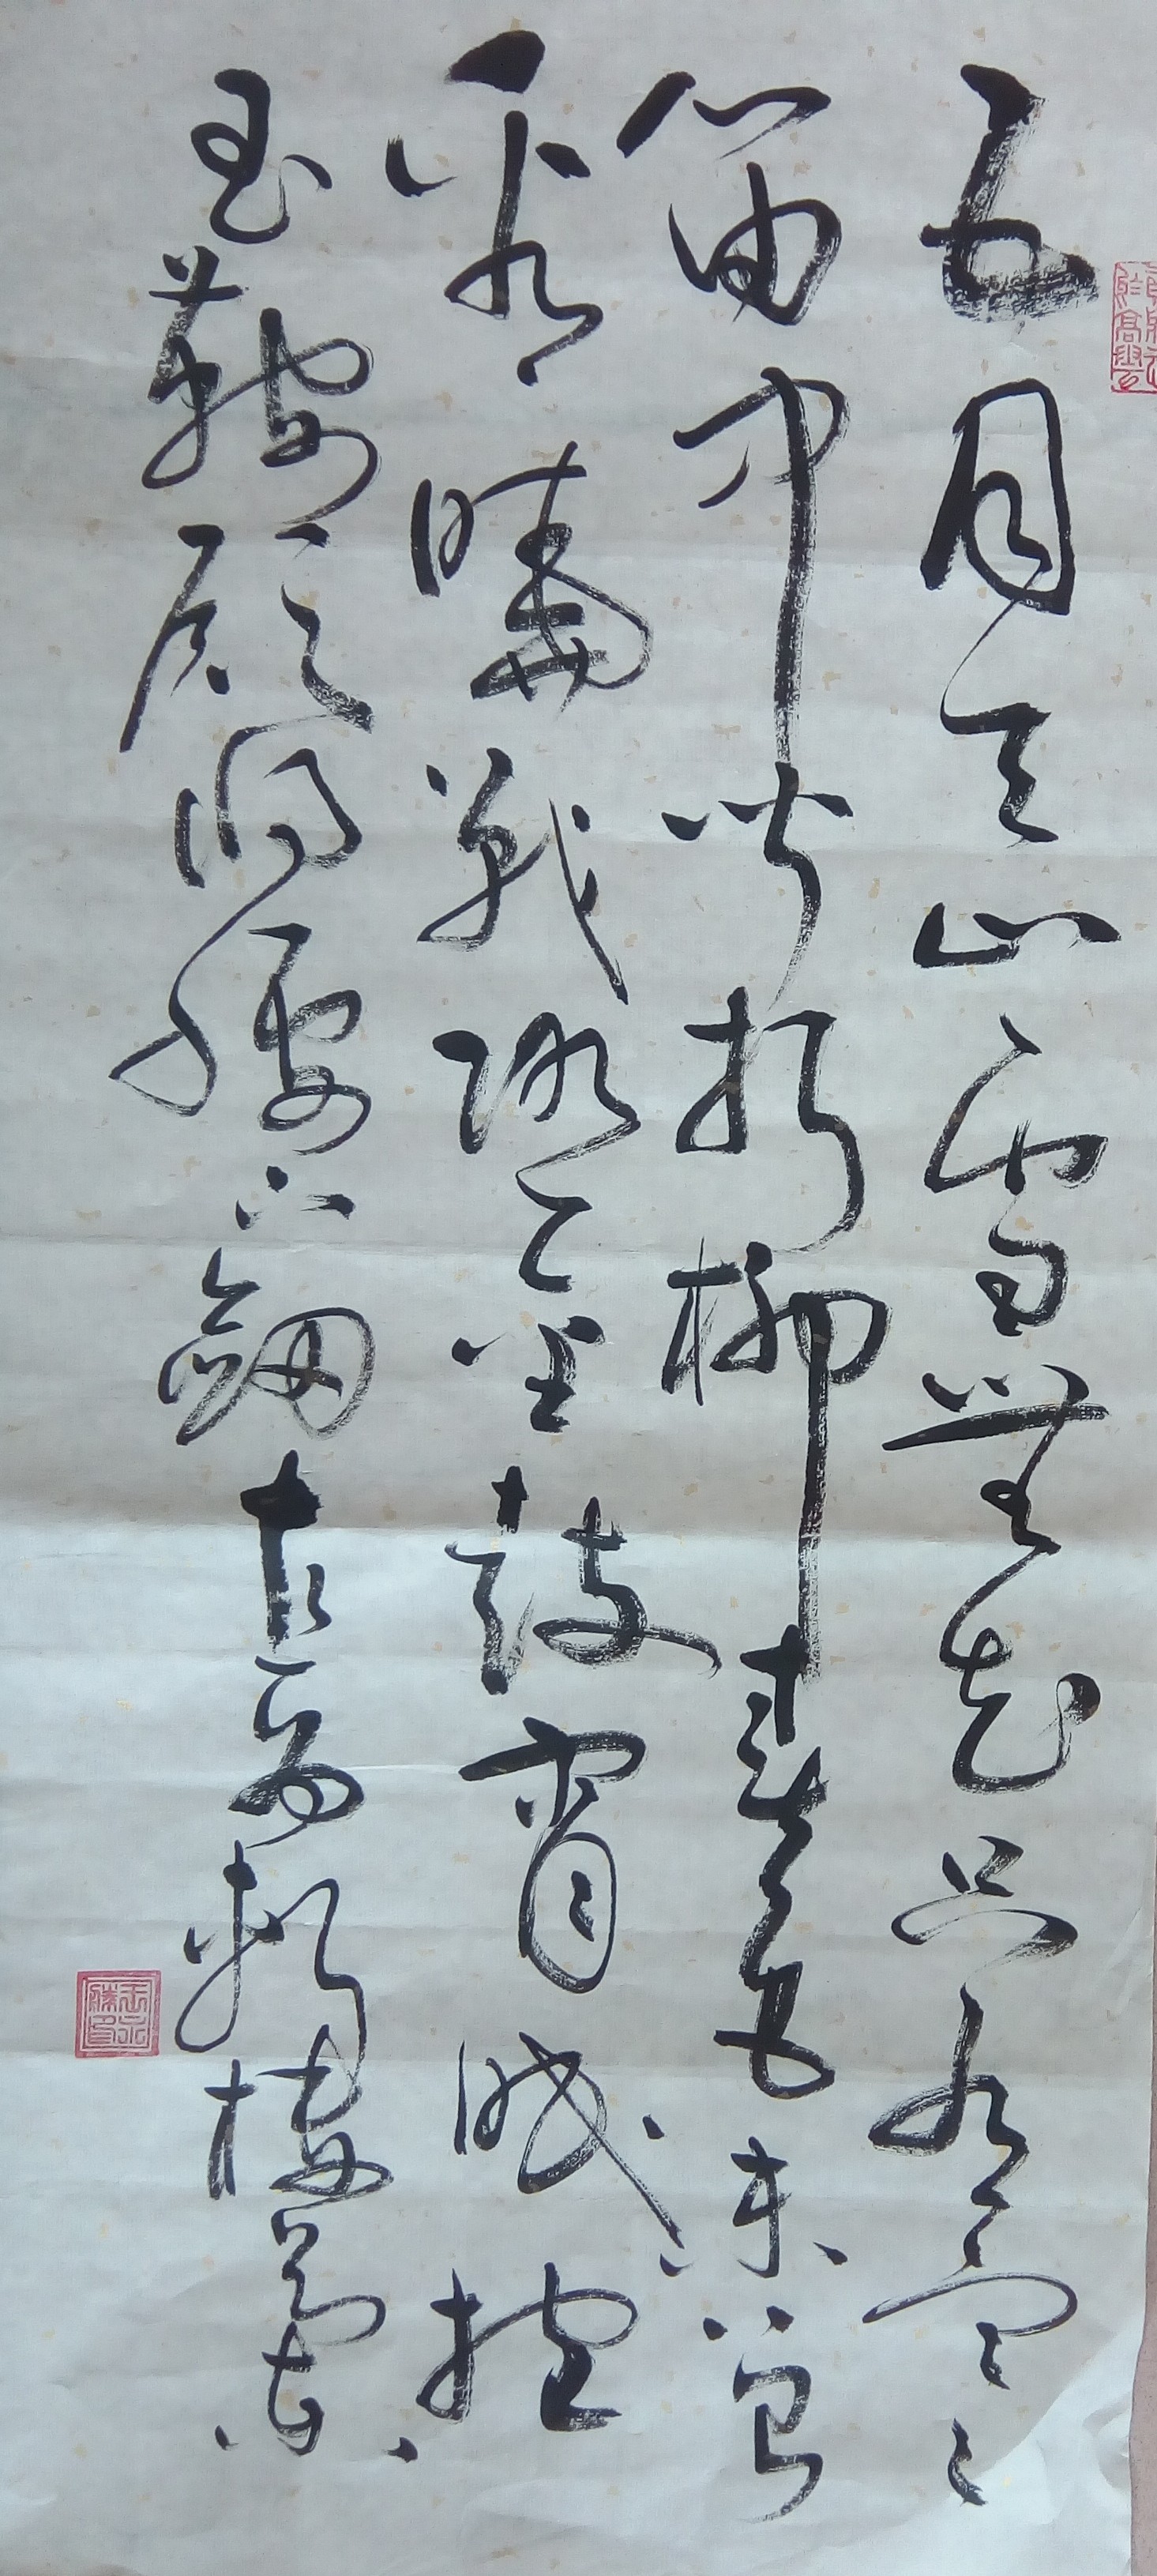 五月天山雪無花只有寒
笛中聞折柳春色未曾
看曉戰隨金鼓宵眠抱
玉鞍願將腰下劍直為斬樓蘭